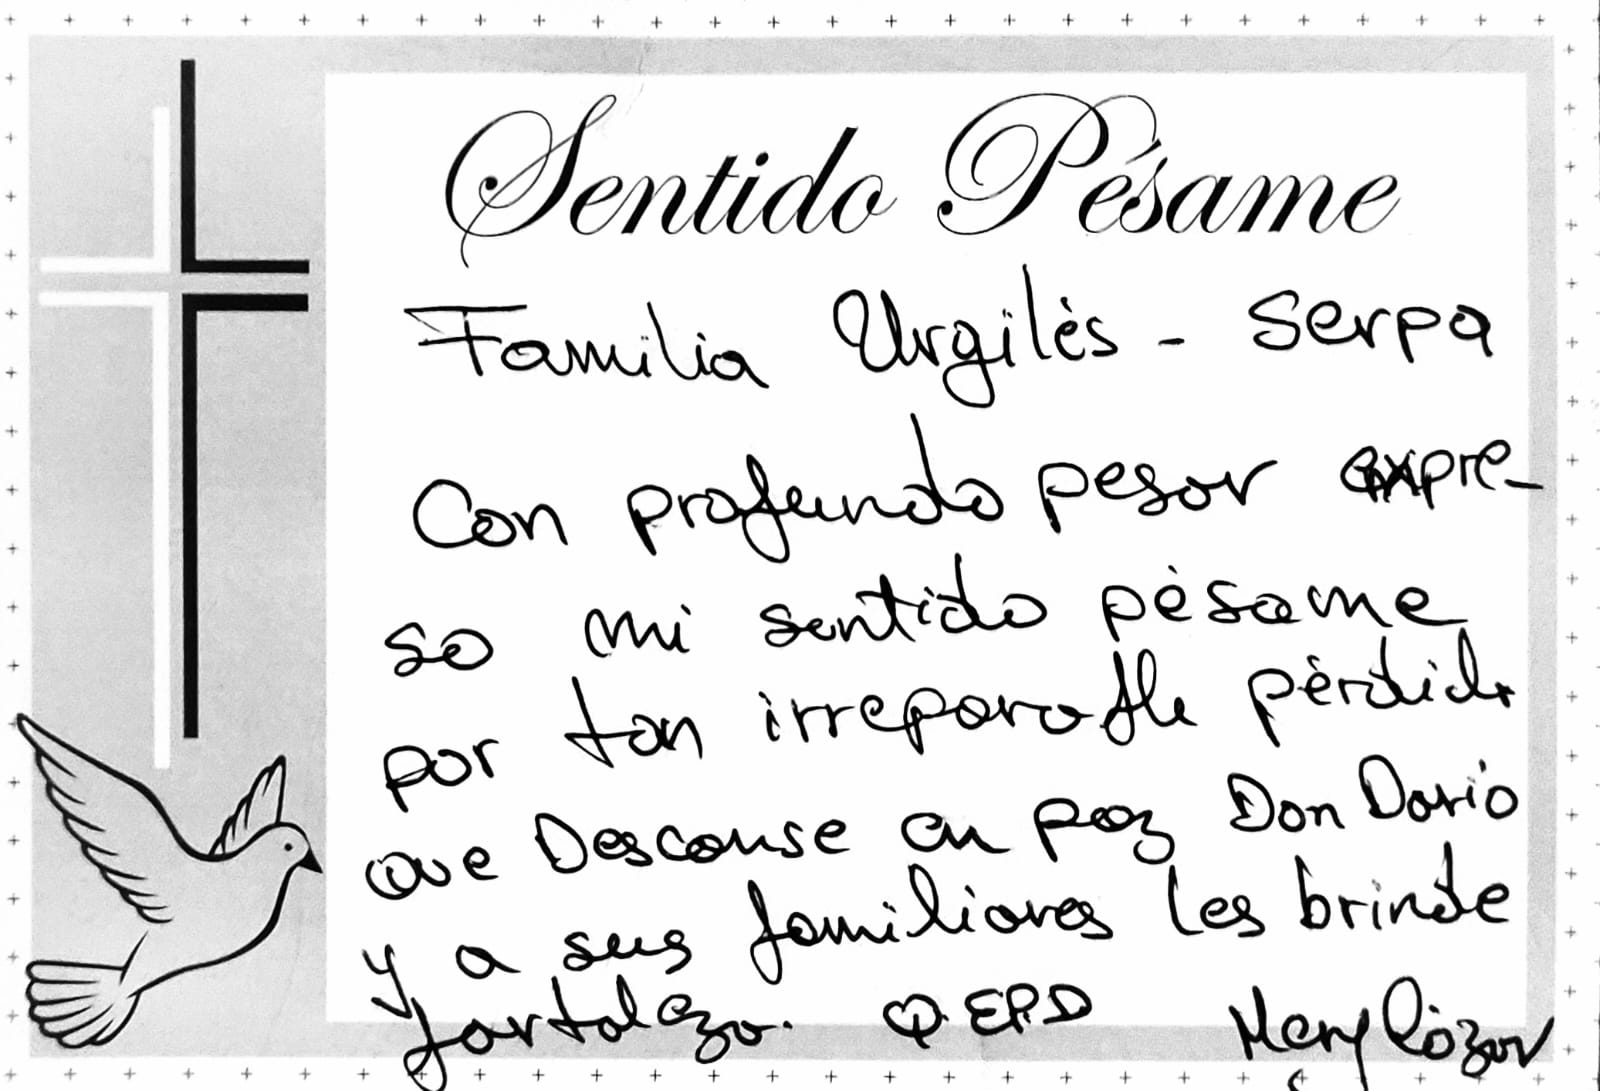 Sentido Pésame
Familia Urgilés - Serpa
Con profundo pesar expre-
so mi sentido pésame
por tan irreparable pérdida
que Descanse en paz Don Dario
y a sus familiares les brinde
fortaleza. Q.E.P.D Mery